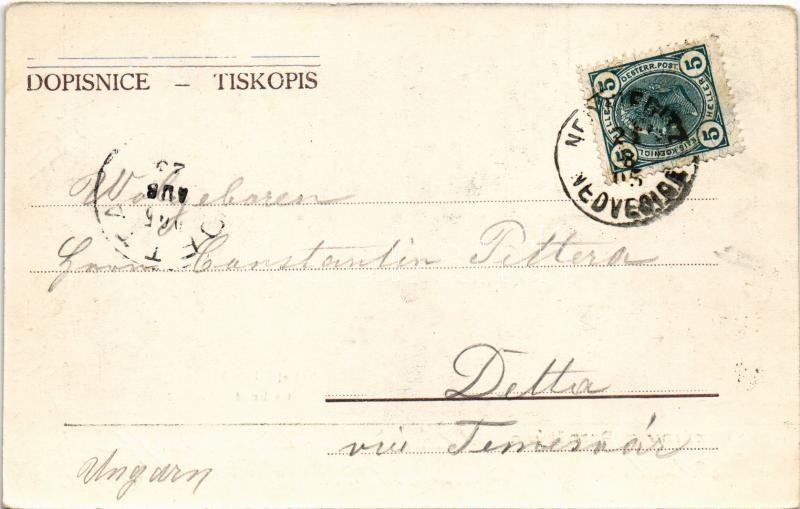 DOPISNICE – TISKOPIS
5 OESTERR. POST. 5
HELLER HELLER
5 5
NEDVEDICE
23 8 05
905
AUG
23
Wolgeboren
Herrn Constantin Pittera
Detta
via Temesvár
Ungarn